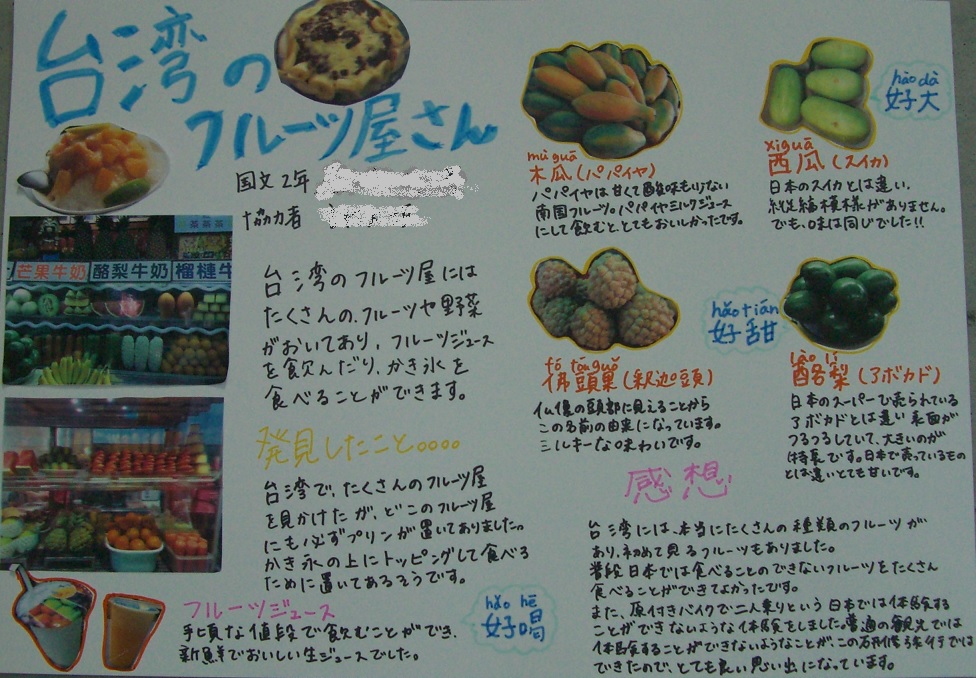 台湾の
フルーツ屋さん
国文2年
協力者
茶茶茶
芒果牛奶
酪梨牛奶
榴槤牛
台湾のフルーツ屋には
たくさんの、フルーツや野菜
がおいてあり、フルーツジュース
を飲んだり、かき氷を
食べることができます。
発見したこと。。。。
台湾で、たくさんのフルーツ屋
を見かけたが、どこのフルーツ屋
にも必ずプリンが置いてありました。
かき氷の上にトッピングして食べる
ために置いてあるそうです。
フルーツジュース
手頃な値段で飲むことができ、
新鮮でおいしい生ジュースでした。
hǎo hē
好喝
mù guā
木瓜(パパイヤ)
パパイヤは甘くて酸味も少ない
南国フルーツ。パパイヤミルクジュース
にして飲むと、とてもおいしかったです。
hǎo dà
好大
xī guā
西瓜(スイカ)
日本のスイカとは違い、
縦縞模様がありません。
でも、味は同じでした!!
fó tóu guǒ
佛頭果(釈迦頭)
仏像の頭部に見えることから
この名前の由来になっています。
ミルキーな味わいです。
hǎo tián
好甜
lào lí
酪梨(アボカド)
日本のスーパーで売られている
アボカドとは違い表面が
つるつるしていて、大きいのが
特長です。日本で売っているもの
とは違いとても甘いです。
感想
台湾には、本当にたくさんの種類のフルーツが
あり、初めて見るフルーツもありました。
普段日本では食べることのできないフルーツをたくさん
食べることができてよかったです。
また、原付きバイクで二人乗りという日本では体験する
ことができないような体験をしました。普通の観光では
体験することができないようなことが、この研修旅行では
できたので、とても良い思い出になっています。